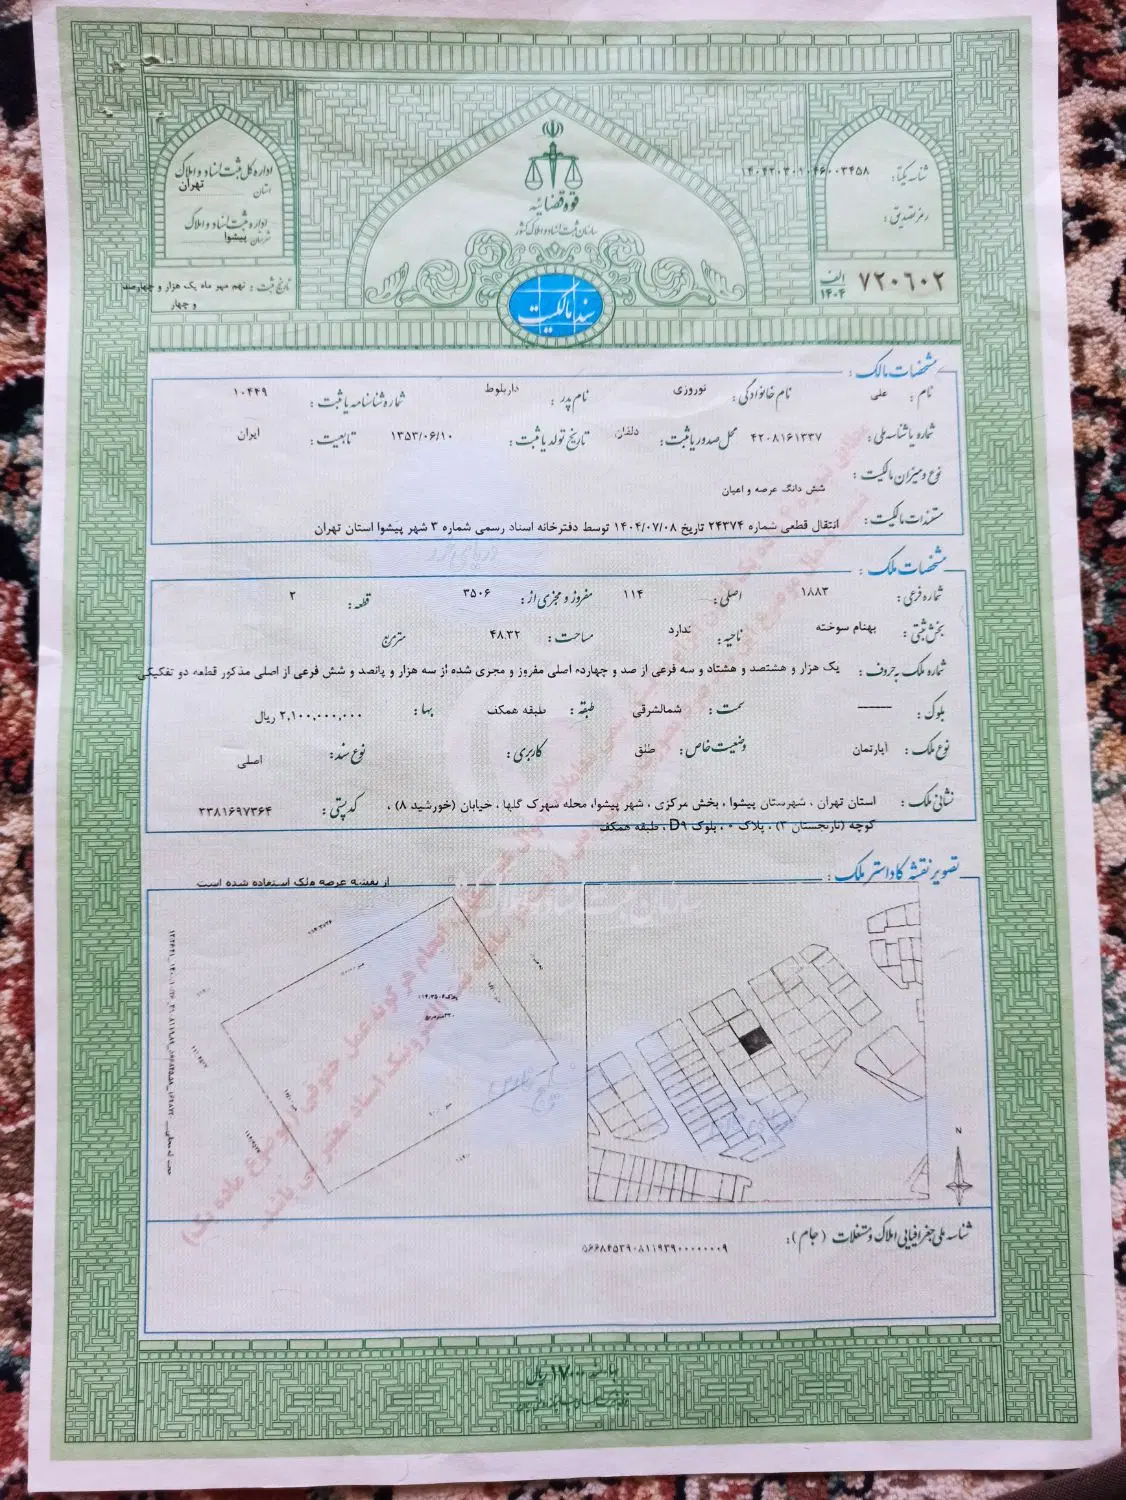 قوه قضائیه
سازمان ثبت اسناد و املاک کشور
سند مالکیت
اداره کل ثبت اسناد و املاک
استان تهران
اداره ثبت اسناد و املاک
شهرستان پیشوا
تاریخ ثبت : نهم مهر ماه یک هزار و چهارصد
و چهار
شناسه یکتا :
رمز تصدیق :
۷۲۰۶۰۲ الف ۱۴۰۴
مشخصات مالک :
نام : علی نام خانوادگی : نوروزی نام پدر : داربلوط شماره شناسنامه یا ثبت : ۱۰۴۴۹
شماره یا شناسه ملی : ۴۲۰۸۱۶۱۳۳۷ محل صدور یا ثبت : دلفان تاریخ تولد یا ثبت : ۱۳۵۳/۰۶/۱۰ تابعیت : ایران
نوع و میزان مالکیت : شش دانگ عرصه و اعیان
مستندات مالکیت : انتقال قطعی شماره ۲۴۳۷۴ تاریخ ۱۴۰۴/۰۷/۰۸ توسط دفترخانه اسناد رسمی شماره ۳ شهر پیشوا استان تهران
مشخصات ملک :
شماره فرعی : ۱۸۸۳ اصلی : ۱۱۴ مفروز و مجزی از : ۳۵۰۶ قطعه : ۲
بخش ثبتی : بهنام سوخته ناحیه : ندارد مساحت : ۴۸.۳۲ متر مربع
شماره ملک به حروف : یک هزار و هشتصد و هشتاد و سه فرعی از صد و چهارده اصلی مفروز و مجزی شده از سه هزار و پانصد و شش فرعی از اصلی مذکور قطعه دو تفکیکی
بلوک : ــــــ سمت : شمالشرقی طبقه : طبقه همکف بها : ۲,۱۰۰,۰۰۰,۰۰۰ ریال
نوع ملک : آپارتمان وضعیت خاص : طلق کاربری : نوع سند : اصلی
نشانی ملک : استان تهران ، شهرستان پیشوا ، بخش مرکزی ، شهر پیشوا، محله شهرک گلها ، خیابان (خورشید ۸) ، کدپستی : ۳۳۸۱۶۹۷۳۶۴
کوچه (نارنجستان ۲) ، پلاک ۰ ، بلوک D۹ ، طبقه همکف
تصویر نقشه کاداستر ملک :
از نقشه عرصه ملک استفاده شده است
N
شناسه ملی جغرافیایی املاک و مستغلات (جام) :